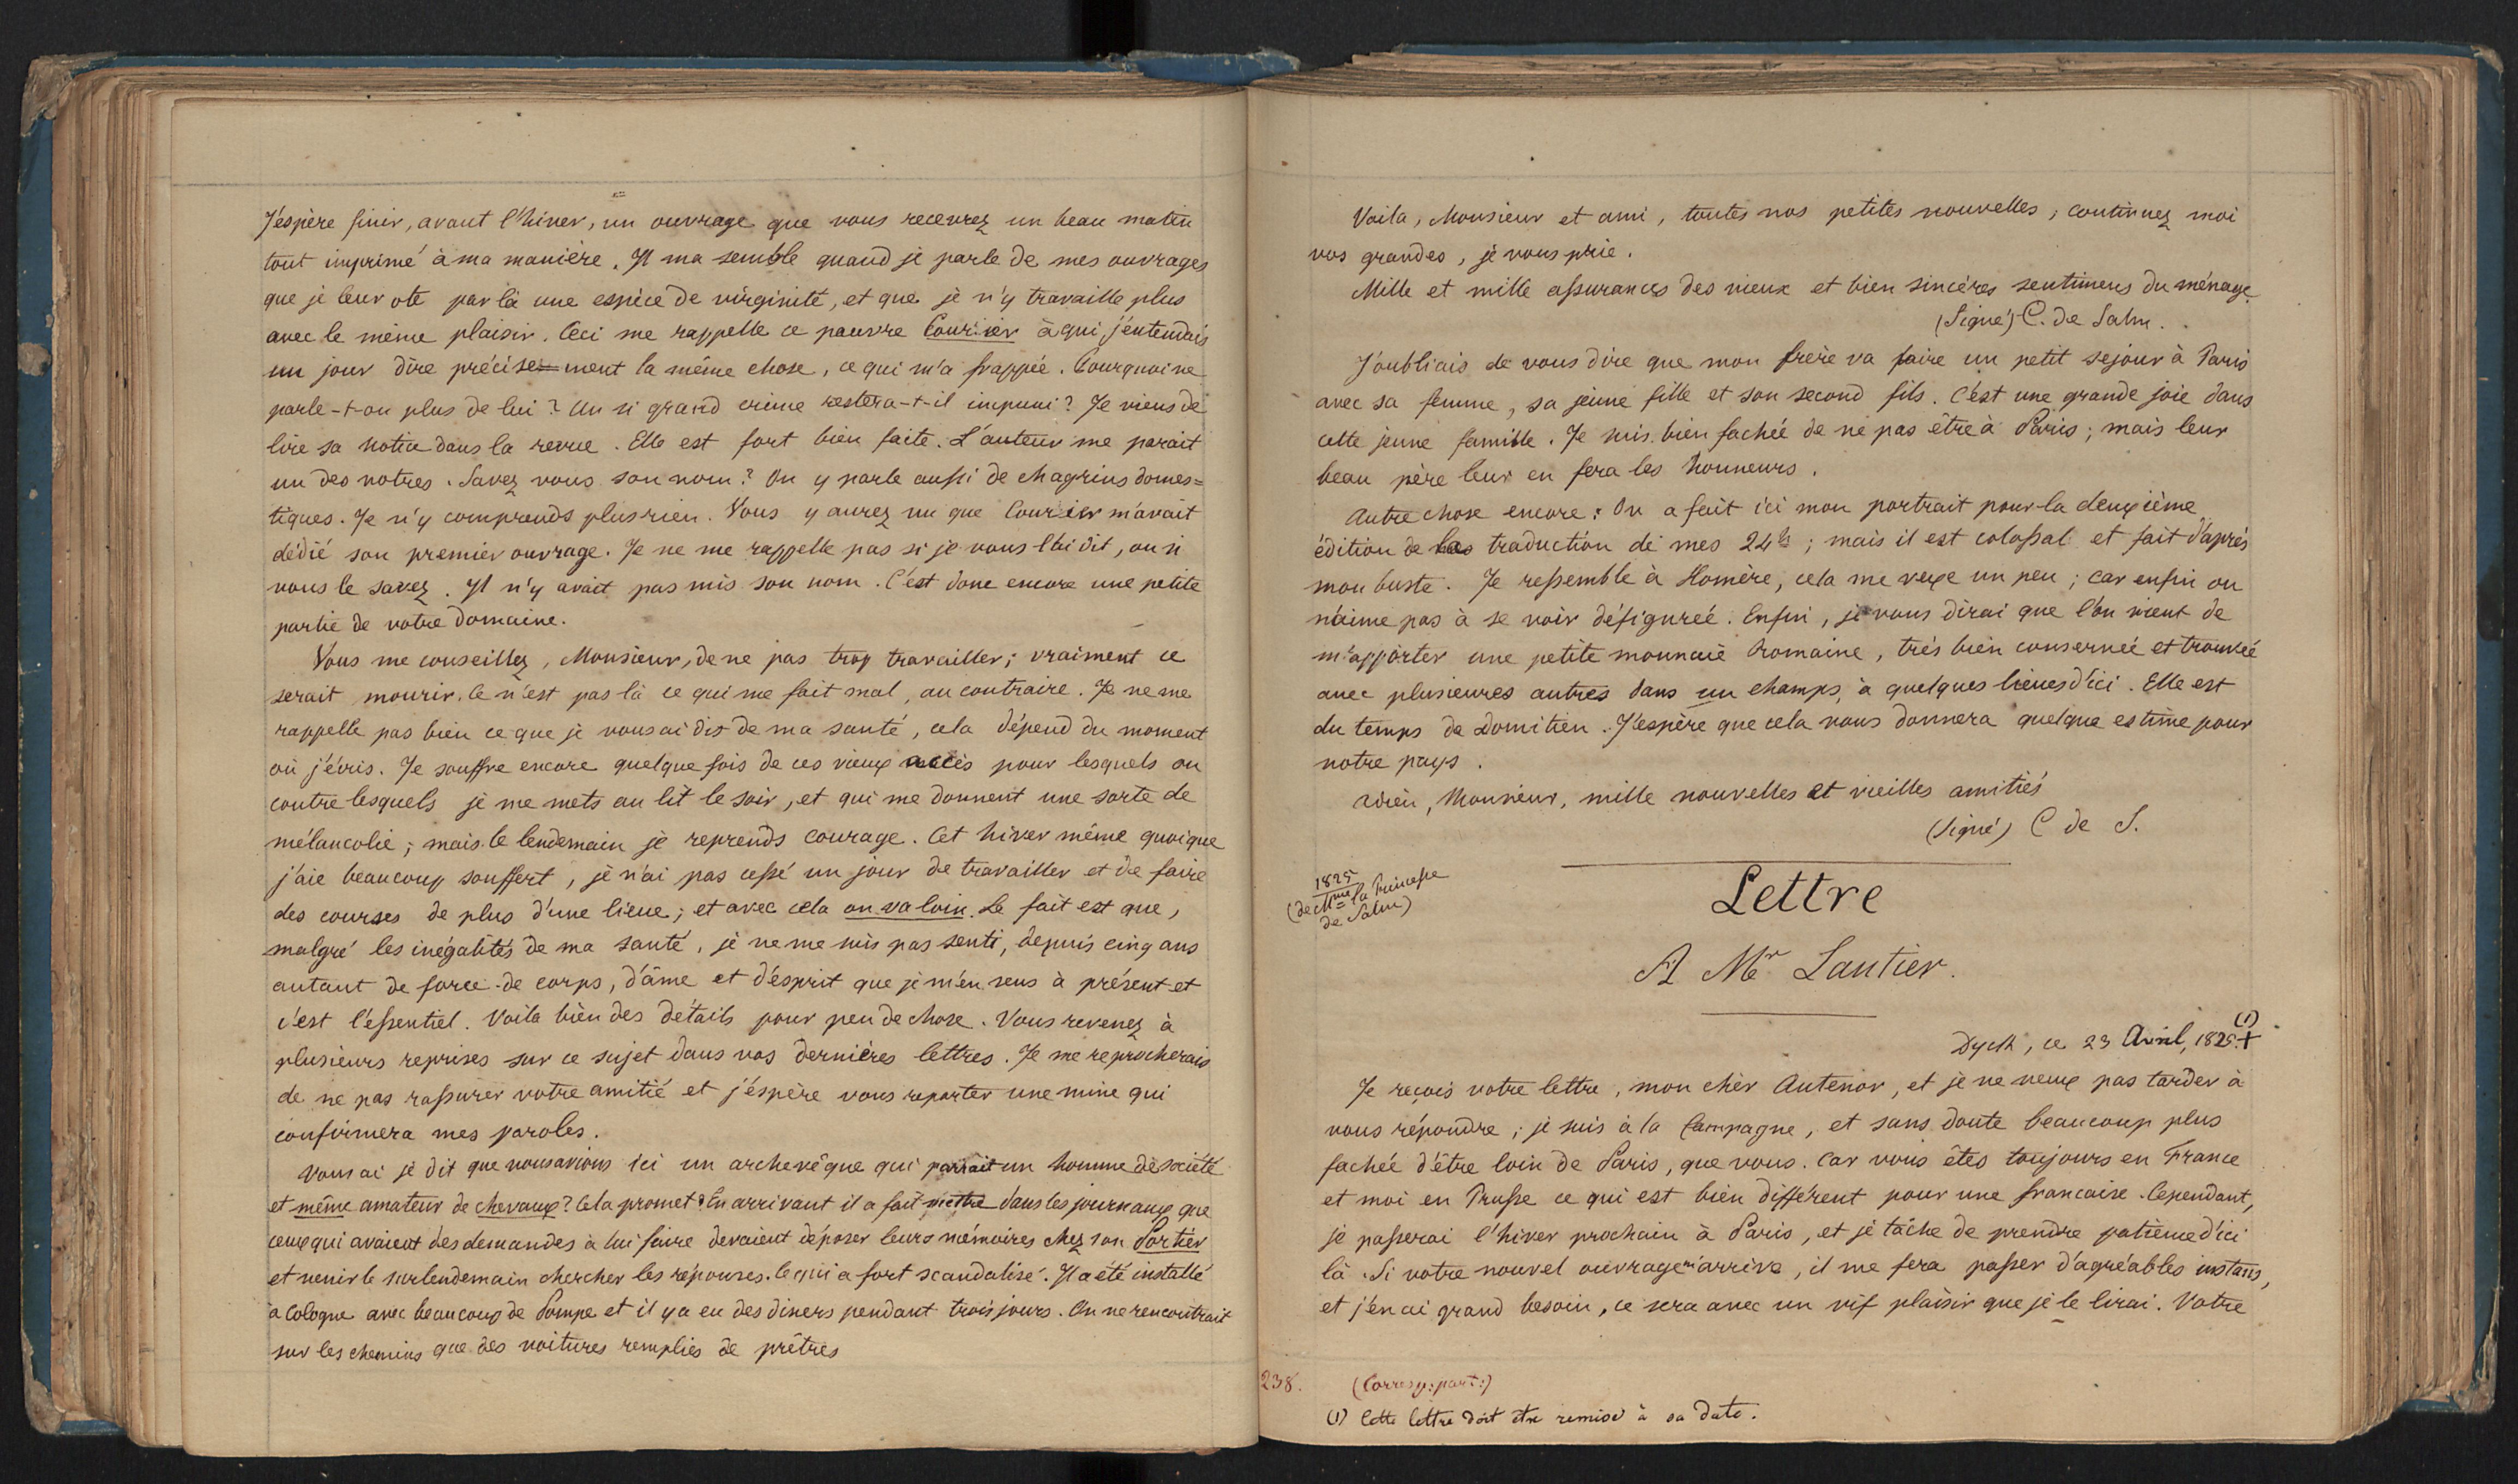 J'espère finir, avant l'hiver, un ouvrage que vous recevrez un beau matin
tout imprimé à ma manière. Il ma semble quand je parle de mes ouvrages
que je leur ote par là une espèce de virginité, et que je n'y travaille plus
avec le même plaisir. Ceci me rappelle ce pauvre Courier à qui j'entendais
un jour dire précise=ment la même chose, ce qui m'a frappée. Pourquoi ne
parle-t-on plus de lui? Un si grand crime restera-t-il impuni? Je viens de
lire sa notice dans la revue. Elle est fort bien faite. L'auteur me parait
un des notres. Savez vous son nom? On y parle aussi de chagrins domes=
tiques. Je n'y comprends plus rien. Vous y aurez vu que Courier m'avait
dédié son premier ouvrage. Je ne me rappelle pas si je vous l'ai dit, ou si
vous le savez. Il n'y avait pas mis son nom. C'est donc encore une petite
partie de votre domaine.
Vous me conseillez, Monsieur, de ne pas trop travailler; vraiment ce
serait mourir. Ce n'est pas là ce qui me fait mal, au contraire. Je ne me
rappelle pas bien ce que je vous ai dis de ma santé, cela dépend du moment
où j'écris. Je souffre encore quelque fois de ces vieux accès pour lesquels ou
contre lesquels je me mets au lit le soir, et qui me donnent une sorte de
mélancolie; mais le lendemain je reprends courage. Cet hiver même quoique
j'aie beaucoup souffert, je n'ai pas cessé un jour de travailler et de faire
des courses de plus d'une lieue; et avec cela on va loin. Le fait est que,
malgré les inégalités de ma santé, je ne me suis pas senti, depuis cinq ans
autant de force de corps, d'âme et d'esprit que je m'en sens à présent et
c'est l'essentiel. Voila bien des détails pour peu de chose. Vous revenez à
plusieurs reprises sur ce sujet dans vos dernières lettres. Je me reprocherais
de ne pas rassurer votre amitié et j'éspère vous reporter une mine qui
confirmera mes paroles.
Vous ai je dit que nous avions ici un archevêque qui parrait un homme de société
et même amateur de chevaux? Cela promet? En arrivant il a fait mettre dans les journaux que
ceux qui avaient des demandes à lui faire devaient déposer leurs mémoires chez son Portier
et venir le surlendemain chercher les réponses. Ce qui a fort scandalisé. Il a été installé
a Cologne avec beaucoup de Pompe et il y a eu des diners pendant trois jours. On ne rencontrait
sur les chemins que des voitures remplies de prêtres
Voila, Monsieur et ami, toutes nos petites nouvelles; continuez moi
vos grandes, je vous prie.
Mille et mille assurances des vieux et bien sincères sentimens du ménage
(Signé) C. de Salm.
J'oubliais de vous dire que mon frère va faire un petit sejour à Paris
avec sa femme, sa jeune fille et son second fils. C'est une grande joie dans
cette jeune famille. Je suis bien fachée de ne pas être à Paris; mais leur
beau père leur en fera les honneurs.
Autre chose encore: On a fait ici mon portrait pour la deuxième
édition de la traduction de mes 24h; mais il est colossal et fait d'après
mon buste. Je ressemble à Homère, cela me vexe un peu; car enfin on
n'aime pas à se voir défigurée. Enfin, je vous dirai que l'on vient de
m'apporter une petite monnaie Romaine, très bien conservée et trouvée
avec plusieures autres dans un champs, à quelques lieues d'ici. Elle est
du temps de Domitien. J'espère que cela vous donnera quelque estime pour
notre pays.
Adieu, Monsieur, mille nouvelles et vieilles amitiés
(Signé) C de S.
1825
(de Mme la Princesse
de Salm)
Lettre
A Mr Lantier.
Dyck, ce 23 Avril, 1825. + (1)
Je reçois votre lettre, mon chèr Antenor, et je ne veux pas tarder à
vous répondre; je suis à la Campagne, et sans doute beaucoup plus
fachée d'être loin de Paris, que vous. Car vous êtes toujours en France
et moi en Prusse ce qui est bien différent pour une francaise. Cependant,
je passerai l'hiver prochain à Paris, et je tâche de prendre patience d'ici
là. Si votre nouvel ouvrage m'arrive, il me fera passer d'agréables instans,
et j'en ai grand besoin, ce sera avec un vif plaisir que je le lirai. Votre
238. (Corresp: part:)
(1) Cette lettre doit être remise à sa date.